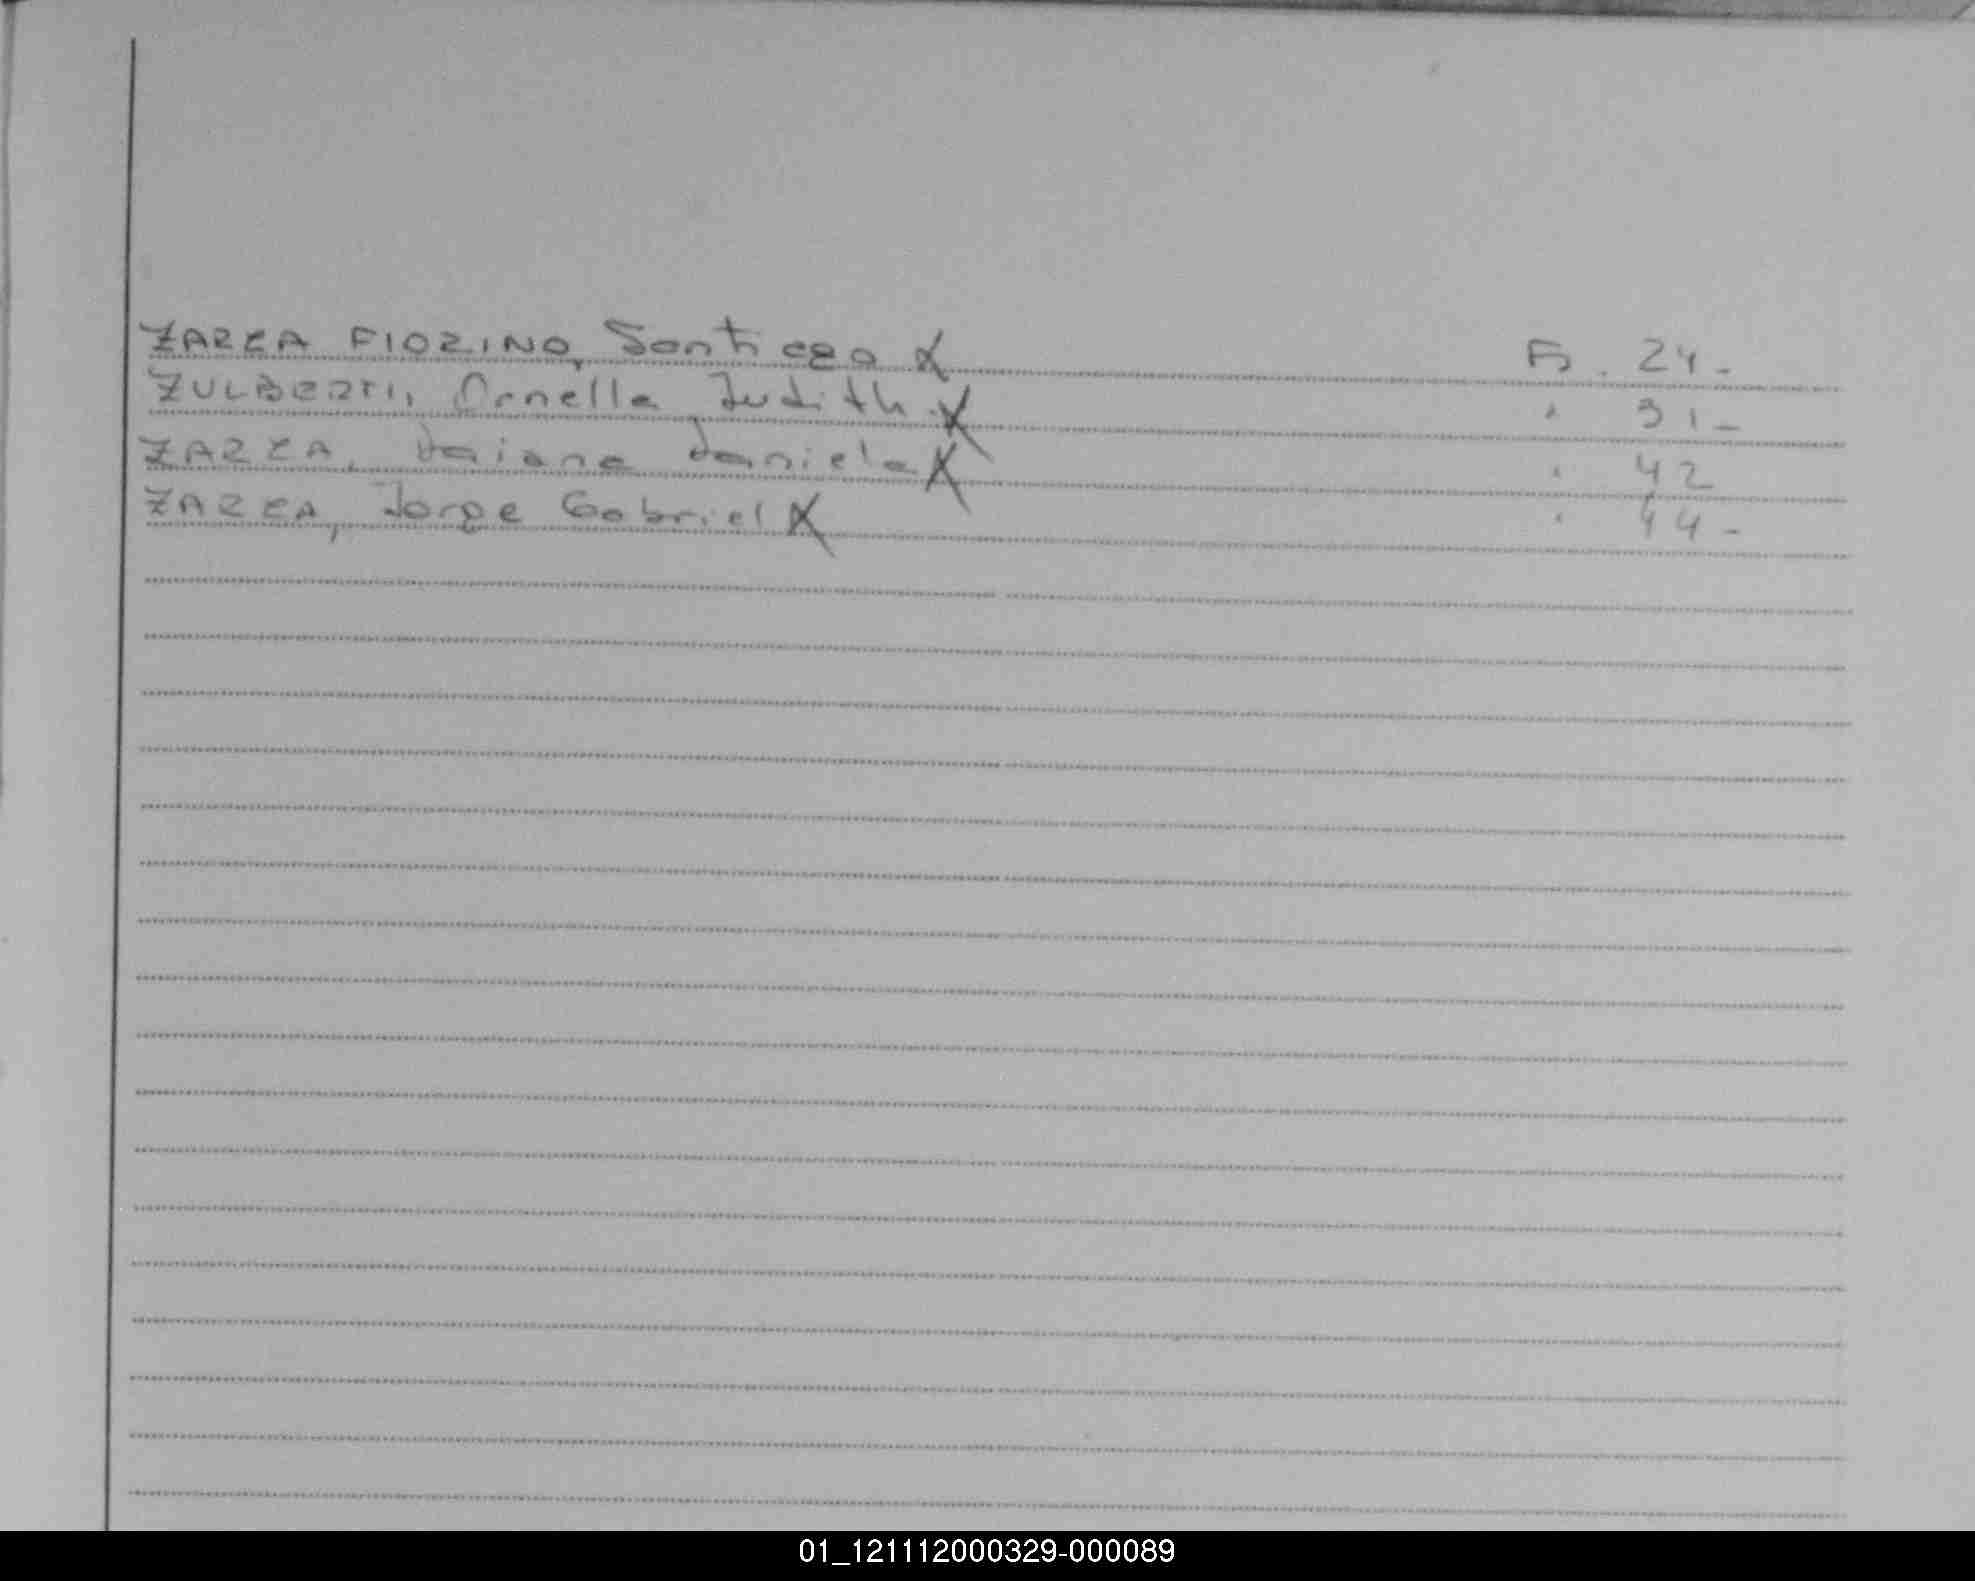 ZARZA FIORINO, Santiago X Fº. 24.-
ZULBERTI, Ornella Judith.X " 31-
ZARZA, Daiana Daniela X " 42
ZARZA, Jorge Gabriel X " 44-
01_121112000329-000089